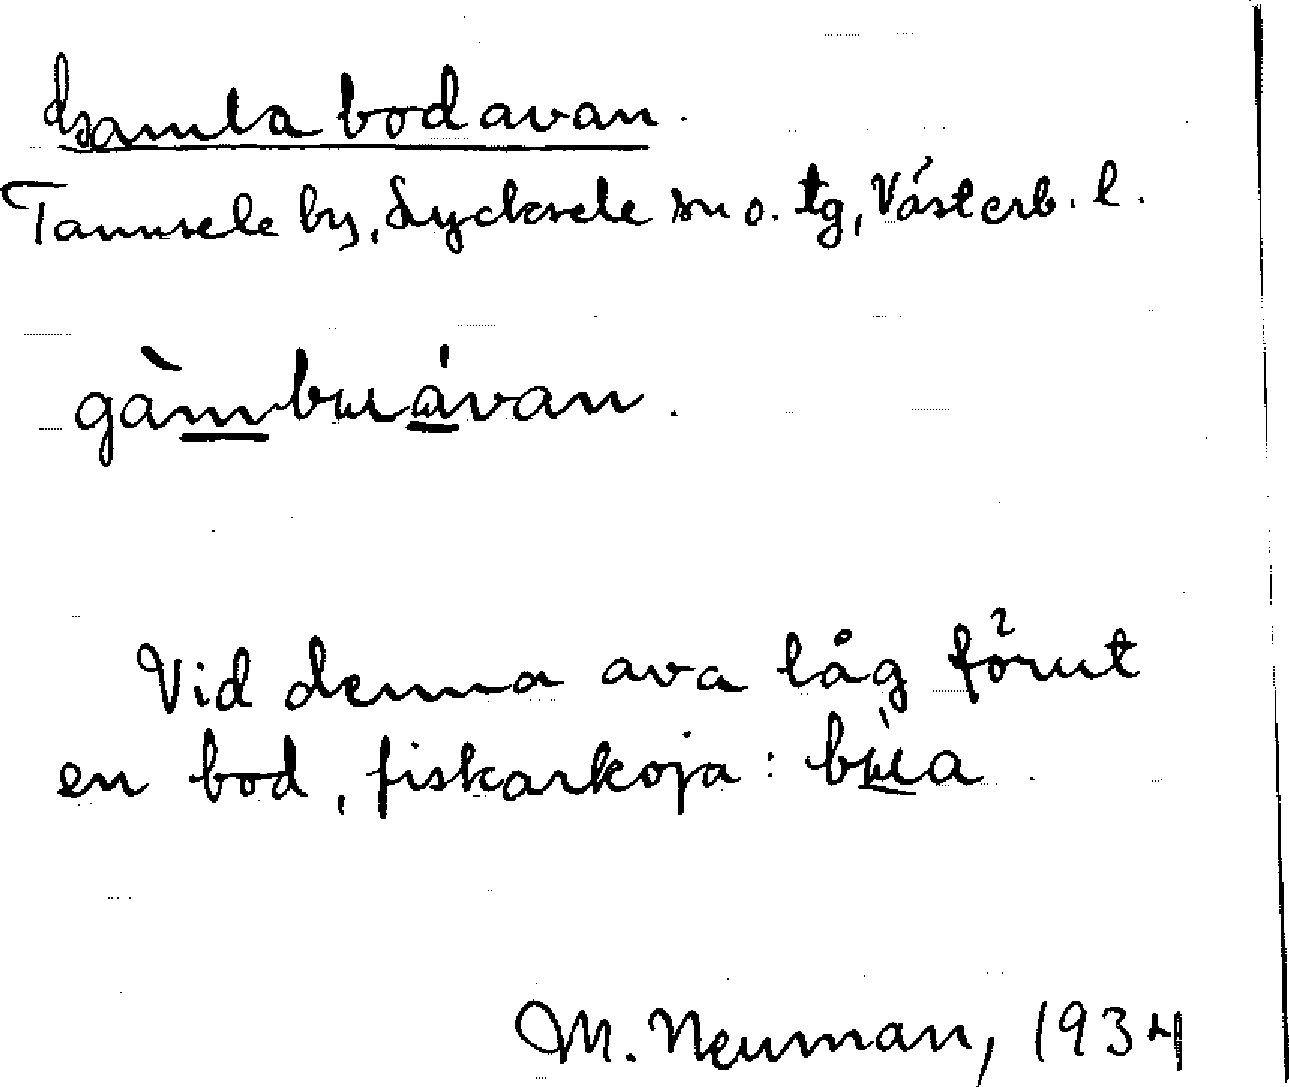 Gamla bodavan.
Tannsele by, Lycksele sn o. tg, Västerb. l.
gàmbuávan.
Vid denna ava låg förut
en bod, fiskarkoja: búa
M. Neuman, 1934